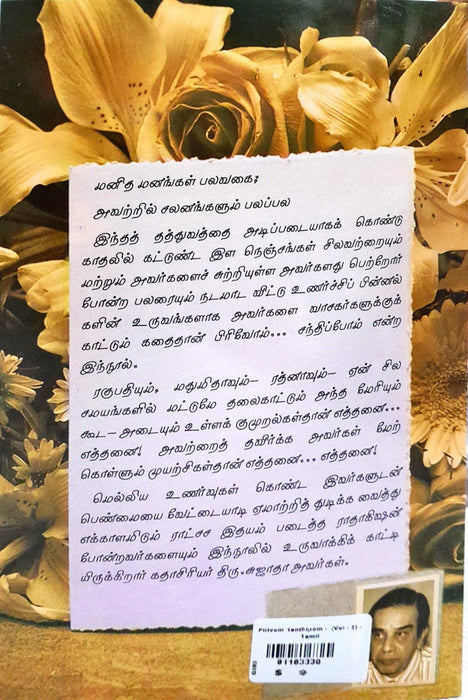 மனித மனங்கள் பலவகை;
அவற்றில் சலனங்களும் பலப்பல
இந்தத் தத்துவத்தை அடிப்படையாகக் கொண்டு
காதலில் கட்டுண்ட இள நெஞ்சங்கள் சிலவற்றையும்
மற்றும் அவர்களைச் சுற்றியுள்ள அவர்களது பெற்றோர்
போன்ற பலரையும் நடமாட விட்டு உணர்ச்சிப் பின்னல்
களின் உருவங்களாக அவர்களை வாசகர்களுக்குக்
காட்டும் கதைதான் பிரிவோம்... சந்திப்போம் என்ற
இந்நூல்.
ரகுபதியும், மதுமிதாவும்– ரத்னாவும்– ஏன் சில
சமயங்களில் மட்டுமே தலைகாட்டும் அந்த மேரியும்
கூட– அடையும் உள்ளக் குமுறல்கள்தான் எத்தனை...
எத்தனை! அவற்றைத் தவிர்க்க அவர்கள் மேற்
கொள்ளும் முயற்சிகள்தான் எத்தனை... எத்தனை!
மெல்லிய உணர்வுகள் கொண்ட இவர்களுடன்
பெண்மையை வேட்டையாடி ஏமாற்றித் துடிக்க வைத்து
எக்காளமிடும் ராட்சச இதயம் படைத்த ராதாகிஷன்
போன்றவர்களையும் இந்நூலில் உருவாக்கிக் காட்டி
யிருக்கிறார் கதாசிரியர் திரு.சுஜாதா அவர்கள்.
Pirivom Santhipom - (Vol - 2) -
Tamil
91163330